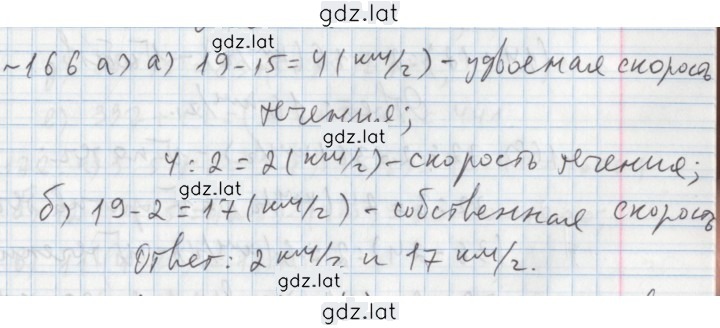 gdz.lat
gdz.lat
№166 а) а) 19-15=4 (км/ч) - удвоенная скорость
течения;
gdz.lat
4:2=2 (км/ч) - скорость течения;
gdz.lat
б) 19-2=17 (км/ч) - собственная скорость
Ответ: 2 км/ч и 17 км/ч.
gdz.lat
gdz.lat